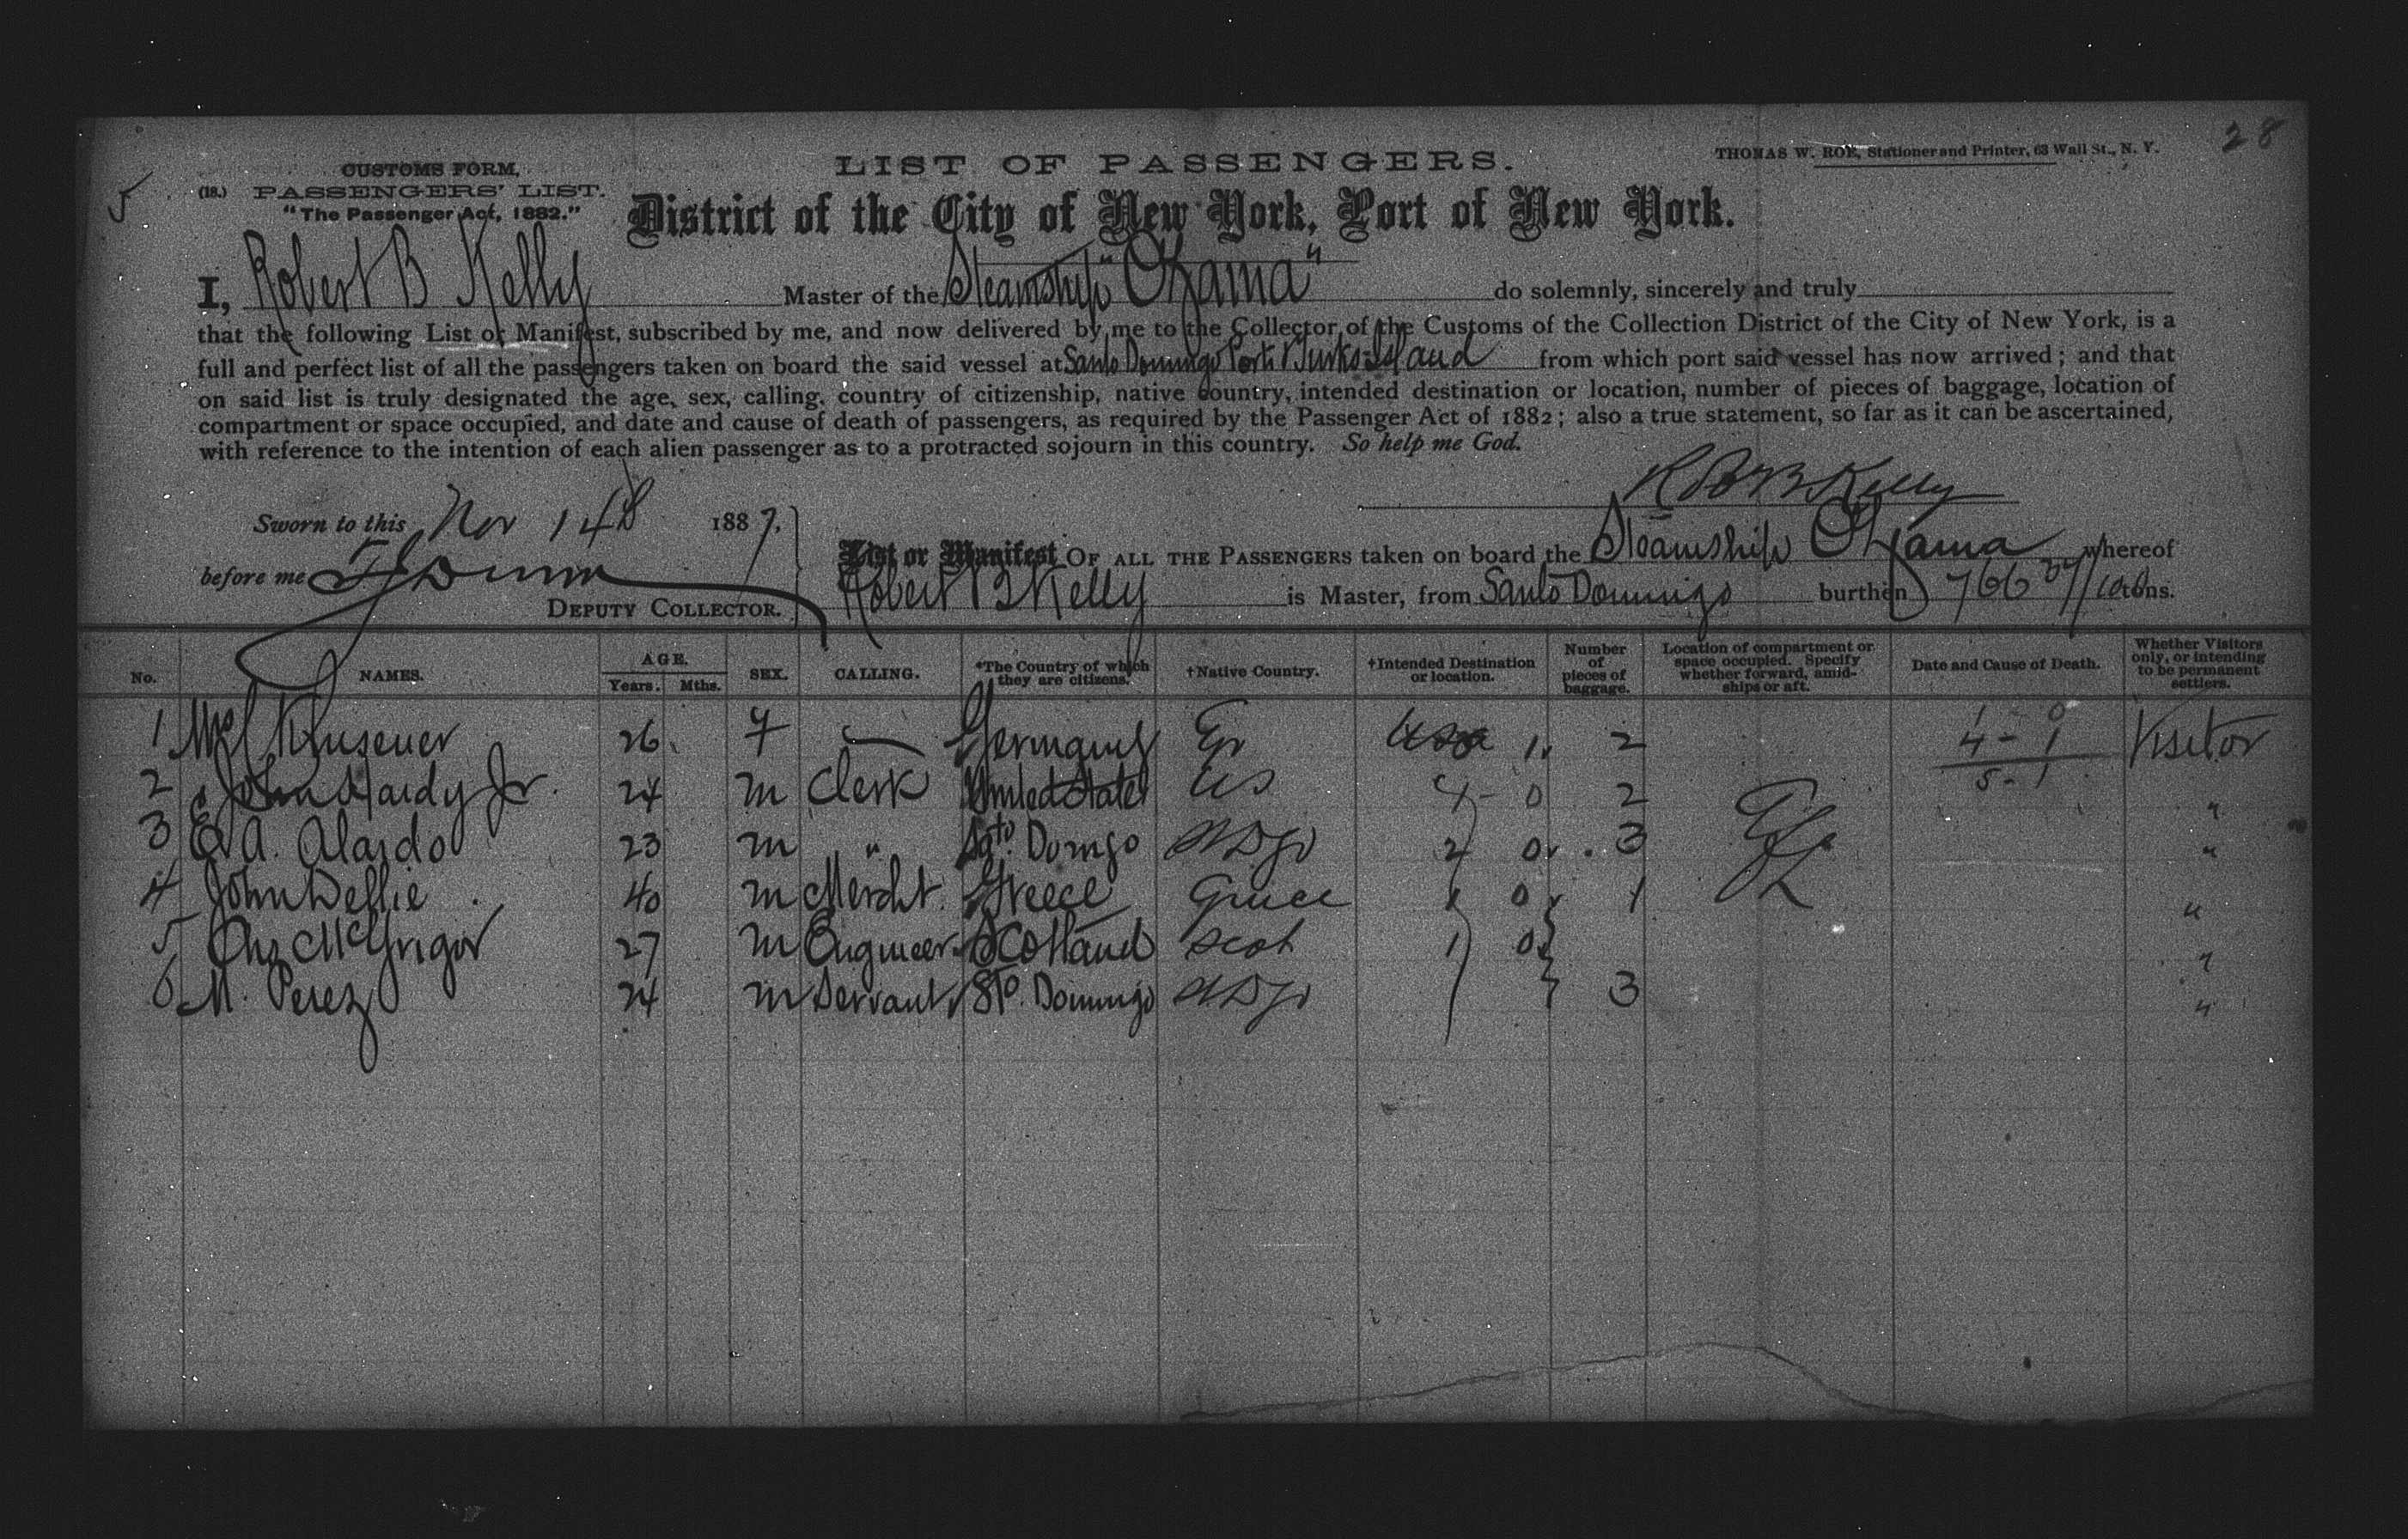 28
THOMAS W. ROE, Stationer and Printer, 63 Wall St., N. Y.
LIST OF PASSENGERS.
CUSTOMS FORM,
(18.) PASSENGERS' LIST.
"The Passenger Act, 1882."
5
District of the City of New York, Port of New York.
I, Robert B Kelly Master of the Steamship "Ozama" do solemnly, sincerely and truly
that the following List or Manifest, subscribed by me, and now delivered by me to the Collector of the Customs of the Collection District of the City of New York, is a
full and perfect list of all the passengers taken on board the said vessel at Santo Domingo Ports & Turks Island from which port said vessel has now arrived; and that
on said list is truly designated the age, sex, calling, country of citizenship, native country, intended destination or location, number of pieces of baggage, location of
compartment or space occupied, and date and cause of death of passengers, as required by the Passenger Act of 1882; also a true statement, so far as it can be ascertained,
with reference to the intention of each alien passenger as to a protracted sojourn in this country. So help me God.
Kelly
Sworn to this Nov 14 1887.
before me Dunn
DEPUTY COLLECTOR.
List or Manifest OF ALL THE PASSENGERS taken on board the Steamship Ozama whereof
Robert B Kelly is Master, from Santo Domingo burthen 766 37/100 tons.
No. NAMES. AGE. Years. Mths. SEX. CALLING. *The Country of which they are citizens. †Native Country. †Intended Destination or location. Number of pieces of baggage. Location of compartment or space occupied. Specify whether forward, amidships or aft. Date and Cause of Death. Whether Visitors only, or intending to be permanent settlers.
1 26 F Germany Gr USA 1 2 Visitor
2 John Hardy Jr. 24 m Clerk United States US 4 - 0 2 "
3 E. A. Alardo 23 m " Sto. Domgo 2 0 3 "
4 John Dellie 40 m Mercht. Greece Greece 1 0 1 "
5 McGrigor 27 m Engineer Scotland Scot 1 0 "
6 M. Perez 24 m Servant Sto. Domingo 3 "
1 - 0
4 - 1
5 - 1